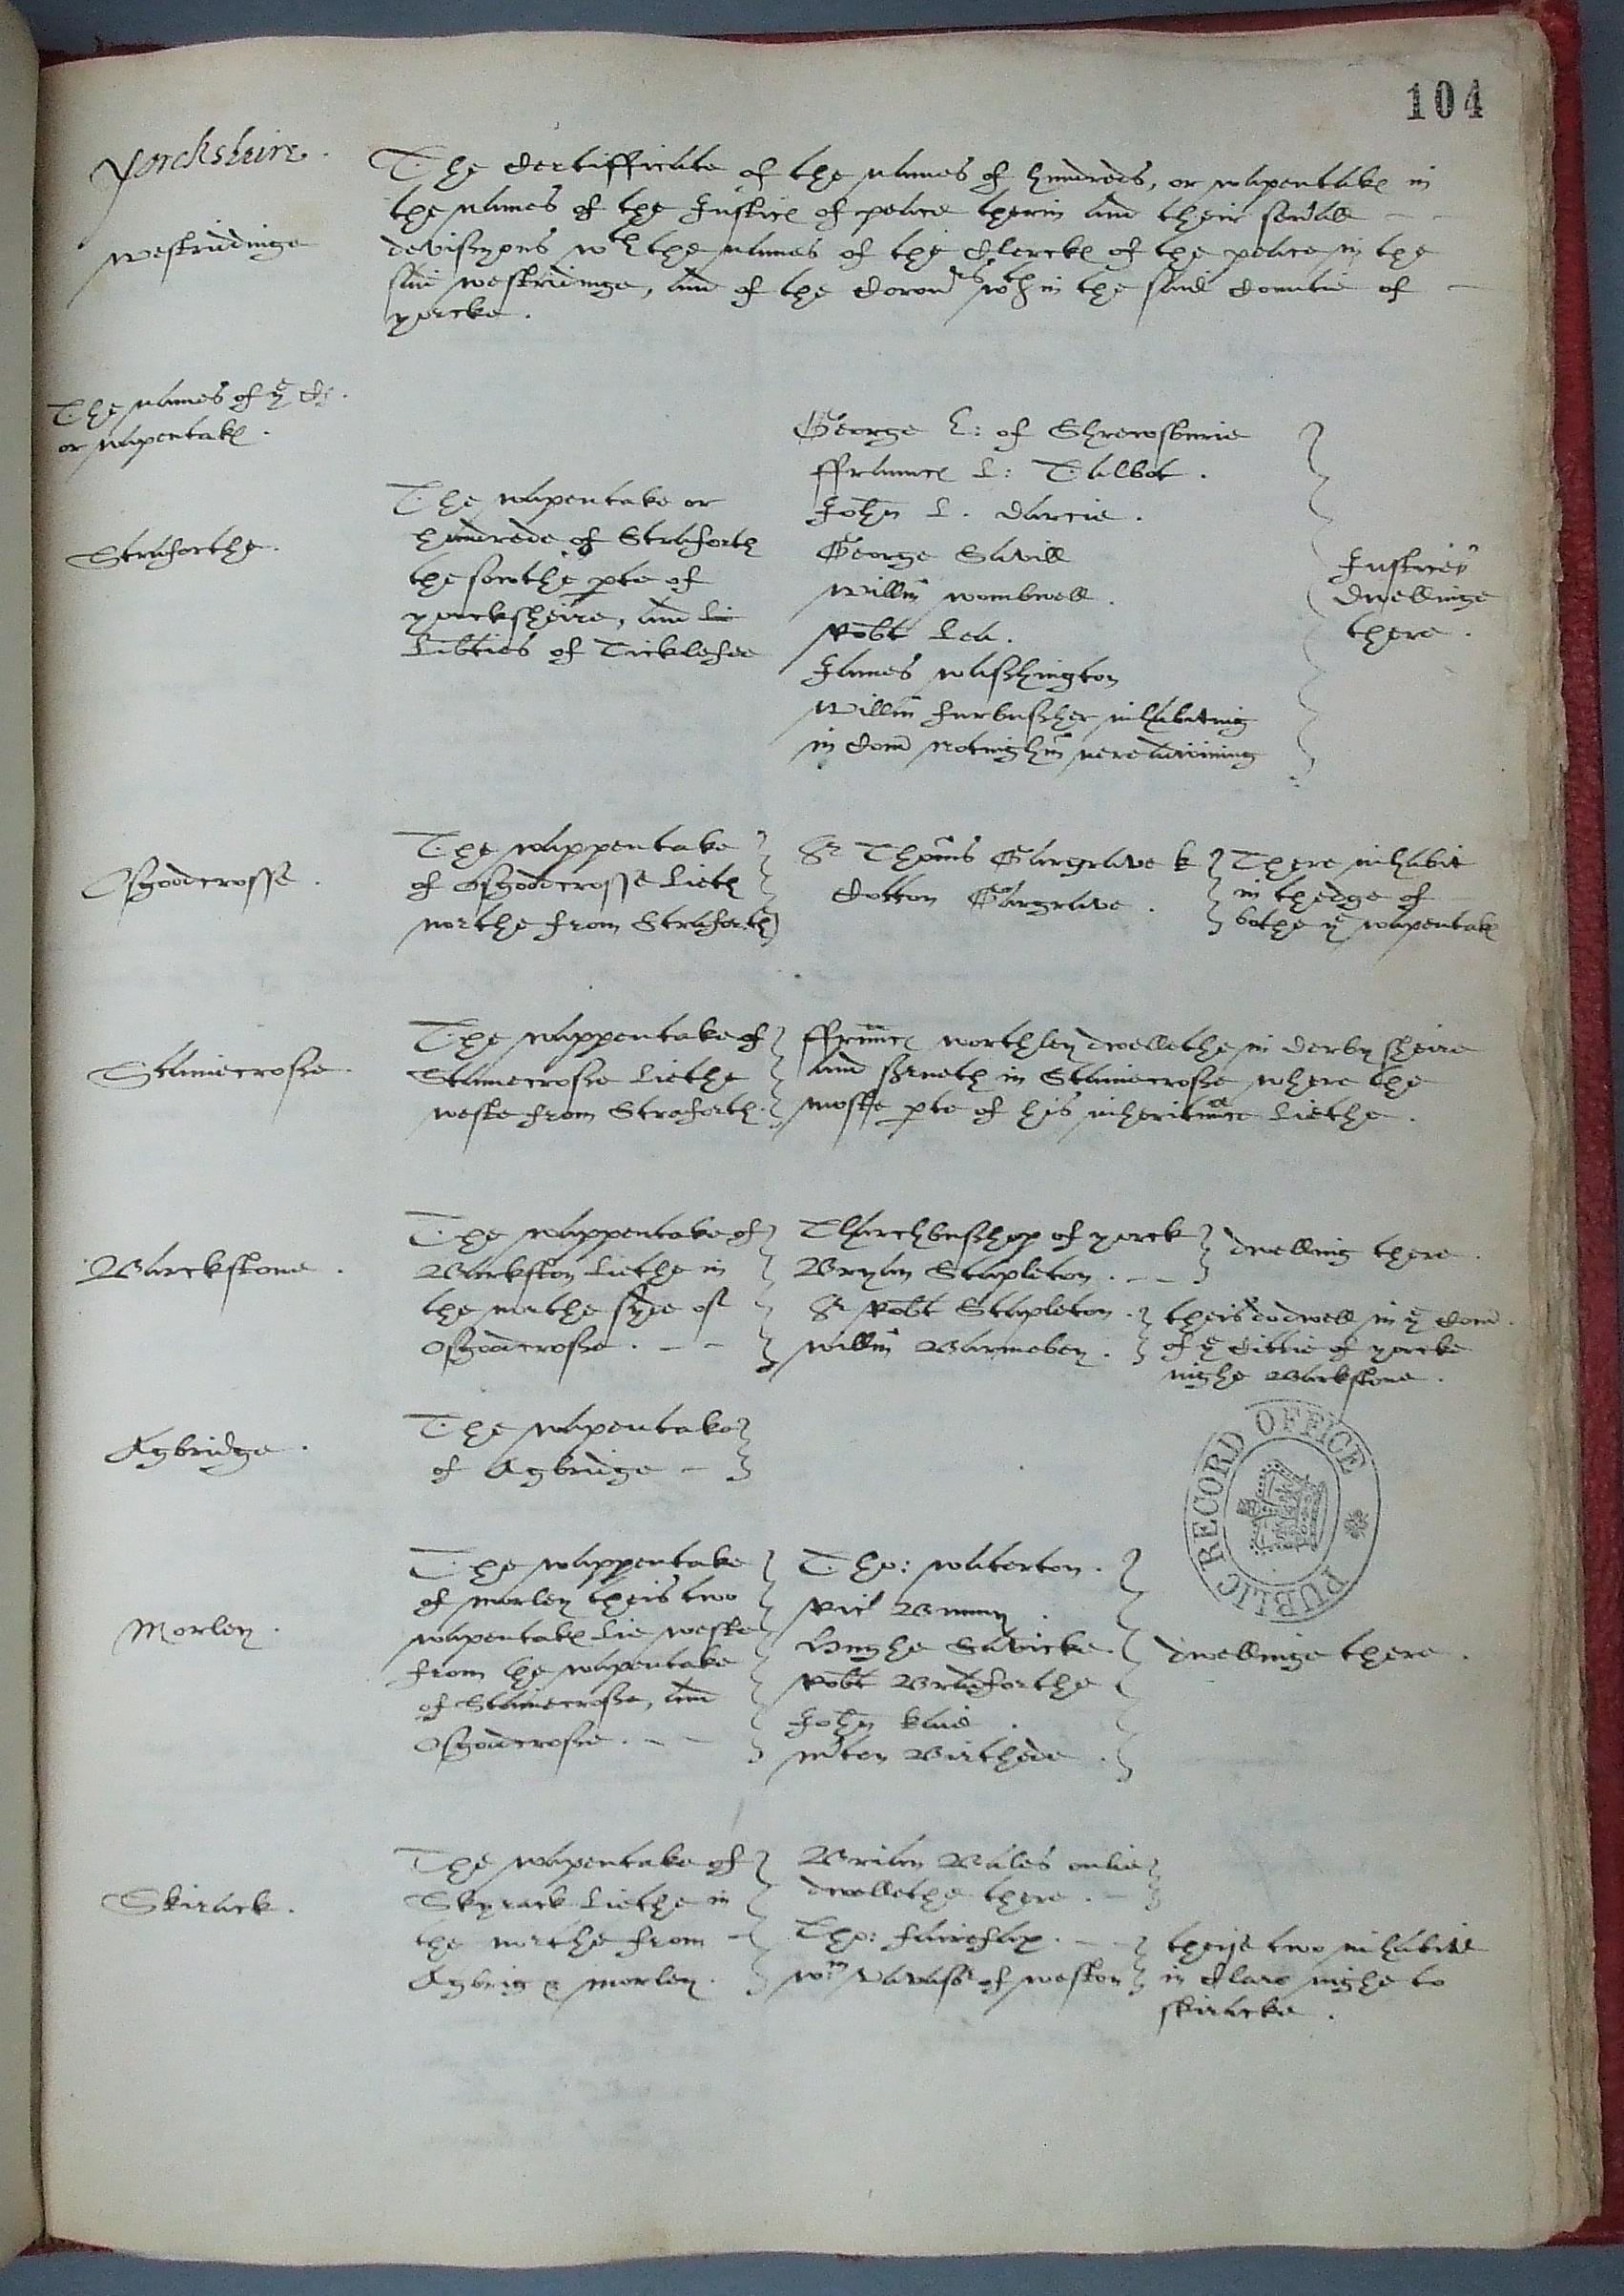 104
Yorcksheire.
Westridinge
The Certifficate of the names of hundreds, or wapentakes in
the names of the Justices of peace therin and their severall
devisyons wth the names of the Clerckes of the peace in the
said westridinge, and of the Coron's wthin the said Countie of
yorcke.
The names of ye
or wapentakes.
Straforthe.
The wapentake or
hundrede of Straforth
the sowthe pte of
yorcksheire, and li
Libties of Ticklefee
George E: of Shrewsburie
ffraunces L: Talbot.
John L. Darcie.
George Savill
Willm Wombwell.
Robt Lea.
James Washington
Willm furbussher inhabiting
in Com Notinghm nere adioining
Justices
dwellinge
there.
Osgoodcrosse.
The wappentake
of Osgoodcrosse lieth
northe from Straforth
Sr Thoms Gargrave k
Cotton Gargrave.
There inhabit
in thedge of
bothe ye wapentakes
Stainecrosse.
The wappentake of
Stainecrosse liethe
weste from Straforth.
ffraunces Worthley dwellethe in derbysheire
and serveth in Stainecrosse where the
moste pte of his inheritance liethe.
Barckstone.
The wappentake of
Barkston liethe in
the northe syde of
Osgodcrosse.
Tharchbusshop of yorck
Bryan Stapleton.
dwelling there.
Sr Robt Stapleton.
Willm Barmebey.
theis do dwell in ye Com
of ye Cittie of yorcke
nighe Barkstone.
Agbridge.
The wapentake
of Agbridge
Morley.
The wappentake
of morley theis two
wapentakes lie weste
from the wapentake
of Stainecrosse, and
Osgodcrosse.
Tho: Waterton.
Ric Bunny.
Hughe Savicke.
Robt Bradforthe
John Kaie.
mton Birthede.
dwellinge there.
Skirack.
The wapentake of
Skyrack liethe in
the northe from
Agbrig & morley.
Brian Bales onlie
dwellethe there.
Tho: fairefax.
Wm Vavasr of Weston
theise two inhabite
in Claro nighe to
skiracke.
PUBLIC RECORD OFFICE